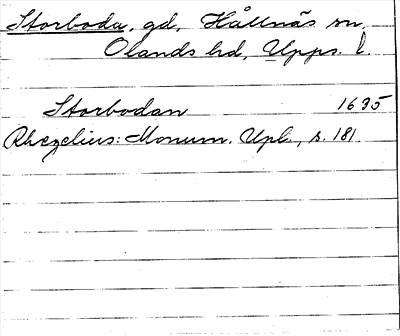 Storboda, gd, Hållnäs sn,
Olands hd, Upps. l.
Storbodan 1635
Rhezelius: Monum. Upl., s. 181.